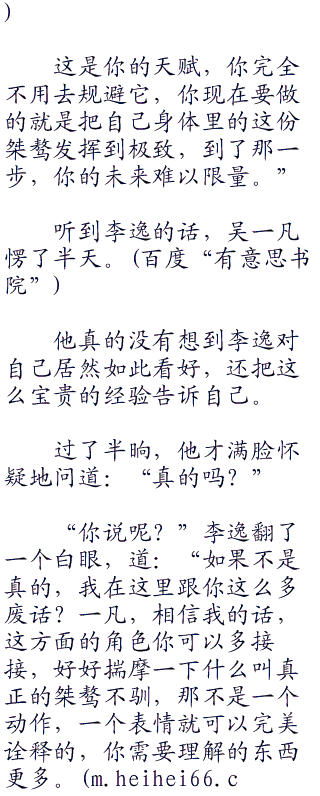 )
这是你的天赋，你完全
不用去规避它，你现在要做
的就是把自己身体里的这份
桀骜发挥到极致，到了那一
步，你的未来难以限量。”
听到李逸的话，吴一凡
愣了半天。(百度“有意思书
院”)
他真的没有想到李逸对
自己居然如此看好，还把这
么宝贵的经验告诉自己。
过了半晌，他才满脸怀
疑地问道：“真的吗？”
“你说呢？”李逸翻了
一个白眼，道：“如果不是
真的，我在这里跟你这么多
废话？一凡，相信我的话，
这方面的角色你可以多接
接，好好揣摩一下什么叫真
正的桀骜不驯，那不是一个
动作，一个表情就可以完美
诠释的，你需要理解的东西
更多。(m.heihei66.c